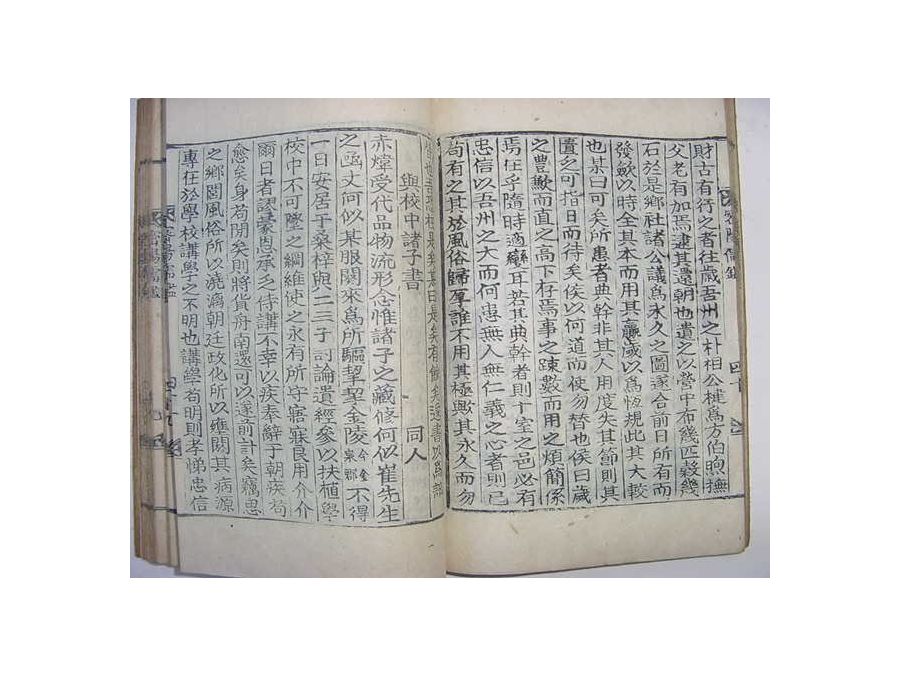 財古有行之者往歲吾州之朴相公楗爲方伯煦撫
父老有加焉逮其還朝也遺之以營中布幾匹穀幾
石於是鄕社諸公議爲永久之圖遂合前日所有而
發斂以時全其本而用其羸歲以爲恆規此其大較
也某曰可矣所患者典幹非其人用度失其節則其
遺之可指日而待矣侯以何道而使勿替也侯曰歲
之豊歉而直之高下存焉事之疎數而用之煩簡係
焉在乎隨時適變耳若其典幹者則十室之邑必有
忠信以吾州之大而何患無人無仁義之心者則已
苟有之其於風俗歸厚誰不用其極歟其永久而勿
是矣某曰是矣有備矣遂書以
與校中諸子書 同人
赤熛受代品物流形念惟諸子之藏修何似崔先生
之函丈何似某服闋來爲所驅挈挈金陵今金泉郡不得
一日安居于桑梓與二三子討論遺經參以扶植學
校中不可墜之綱維使之永有所守寤寐良用介介
爾日者謬蒙恩承之侍講不幸以疾奉辭于朝疾苟
愈矣身苟閑矣則將貨舟南還可以遂前計矣竊思
之鄕閭風俗所以澆漓朝廷政化所以壅閼其病源
專在於學校講學之不明也講學苟明則孝悌忠信